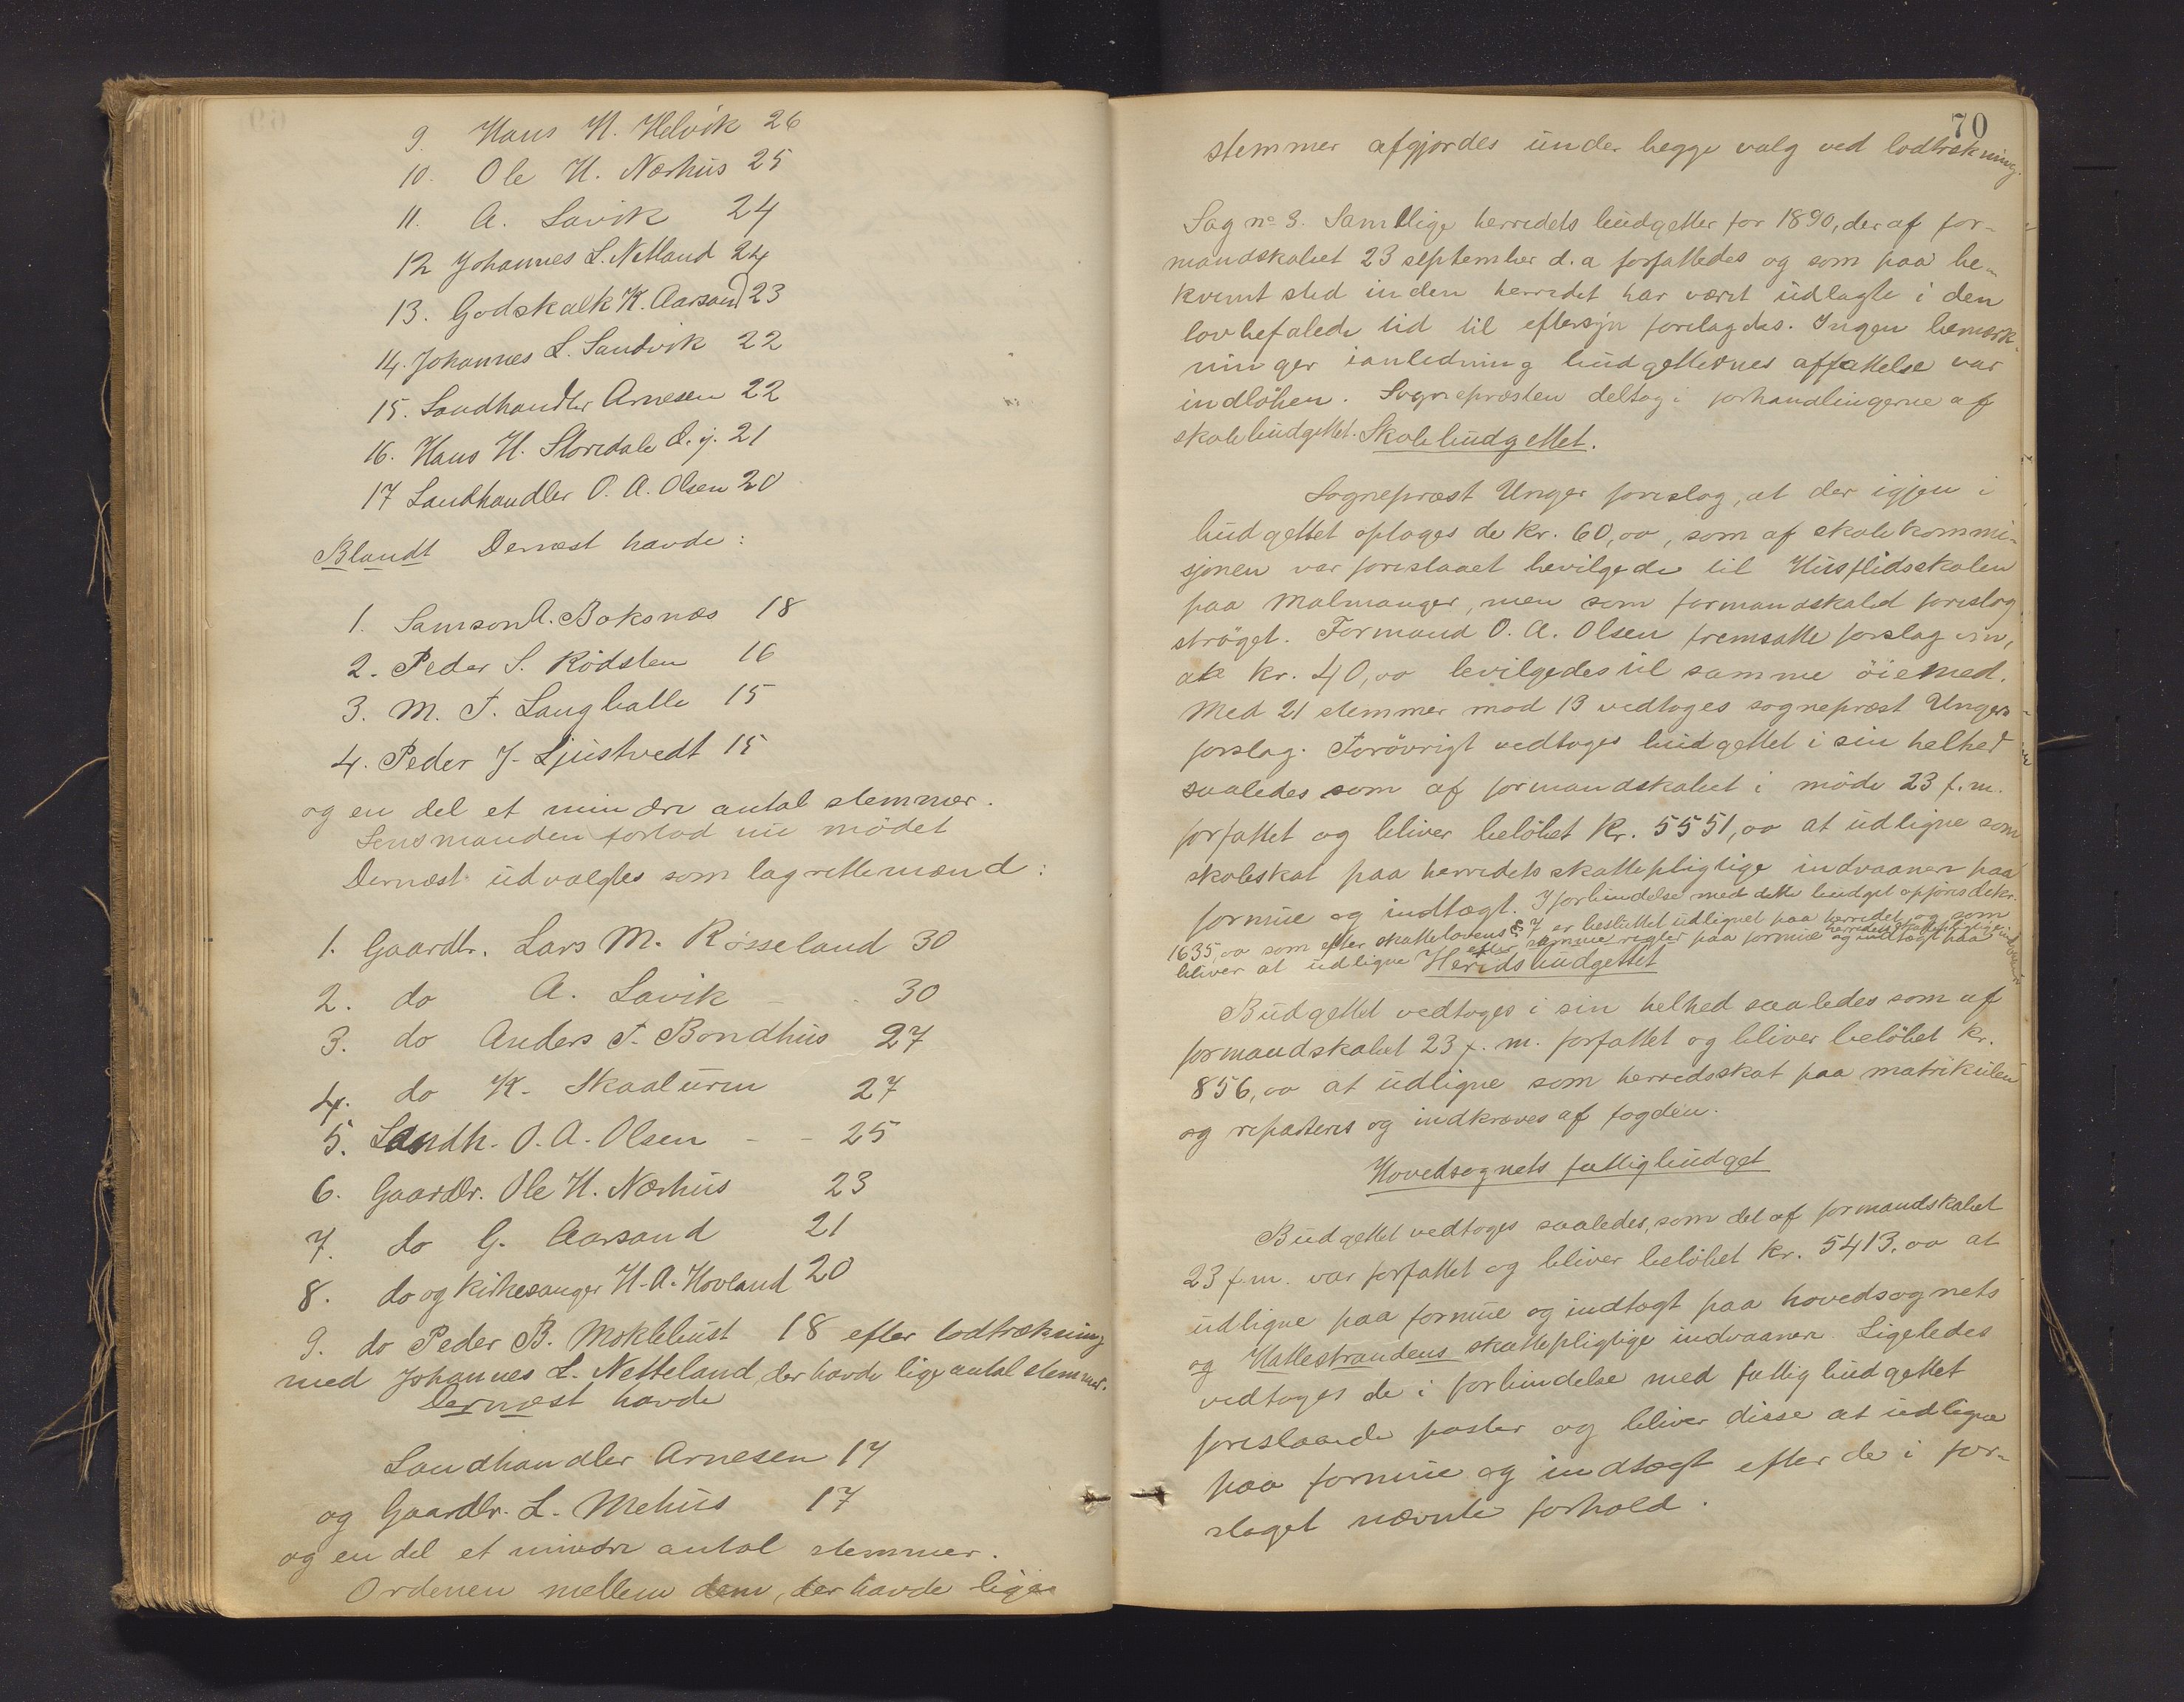 9. Hans H. Helvik 26
10. Ole H. Nærhus 25
11. A. Lavik 24
12 Johannes L. Netland 24
13. Godskalk K. Aarsand 23
14. Johannes L. Sandvik 22
15. Landhandler Arnesen 22
16. Hans H. Storedale d. y. 21
17 Landhandler O. A. Olsen 20
Blandt Dernæst havde:
1. Samson A. Baksnæs 18
2. Peder S. Rödsten 16
3. M. T. Langballe 15
4. Peder J. Ljustvedt 15
og en del et mindre antal stemmer.
Lensmanden forlod nu mödet
Dernæst udvalgtes som lagrettemænd:
1. Gaardbr. Lars M. Røsseland 30
2. do A. Lavik - - 30
3. do Anders T. Bondhus 27
4. do K. Skaaluren 27
5. Landh. O. A. Olsen - - 25
6. Gaardbr. Ole H. Nærhus 23
7. do G. Aarsand 21
8. do og kirkesanger H. A. Hovland 20
9. do Peder B. Moklebust 18 efter lodtrækning
med Johannes L. Netteland, der havde lige antal stemmer.
Dernæst havde
Landhandler Arnesen 17
og Gaardbr. L. Mehus 17
og en del et mindre antal stemmer.
Ordenen mellem dem, der havde lige
70
stemmer afgjordes under begge valg ved lodtrækning.
Sag no 3. Samtlige herredets budgetter for 1890, der af for-
mandskabet 23 september d. a forfattedes og som paa be-
kvemt sted inden herredet har været udlagte i den
lovbefalede tid til eftersyn forelagdes. Ingen bemærk-
ninger ianledning budgetternes affattelse var
indløben. Sognepræsten deltog i forhandlingerne af
skolebudgettet. Skolebudgettet.
Sognepræst Unger foreslog, at der igjen i
budgettet optages de kr. 60,00, som af skolekommi-
sjonen var foreslaaet bevilgede til Husflidsskolen
paa Malmanger, men som formandskabet foreslog
ströget. Formand O. A. Olsen fremsatte forslag om,
at kr. 40,00 bevilgedes til samme öiemed.
Med 21 stemmer mod 13 vedtoges sognepræst Ungers
forslag. Forövrigt vedtoges budgettet i sin helhed
saaledes som af formandskabet i möde 23 f. m.
forfattet og bliver beløbet kr. 5551,00 at udligne som
skoleskat paa herredets skattepligtige indvaanere paa
formue og indtægt. I forbindelse med dette budget opföres de kr.
1635,00 som efter skattelovens § 7 er besluttet udlignet paa herredet og som
bliver at udligne efter samme regler paa formue og indtægt paa herredets skattepligtige indvaanere
Herredsbudgettet
Budgettet vedtoges i sin helhed saaledes som af
formandskabet 23 f. m. forfattet og bliver beløbet kr.
856,00 at udligne som herredsskat paa matrikulen
og reparteres og indkræves af fogden.
Hovedsognets fattigbudget
Budgettet vedtoges saaledes, som det af formandskabet
23 f. m. var forfattet og bliver beløbet kr. 5413,00 at
udligne paa formue og indtægt paa hovedsognets
og Hattestrandens skattepligtige indvaanere. Ligeledes
vedtoges de i forbindelse med fattigbudgettet
foreslaaede poster og bliver disse at udligne
paa formue og indtægt efter de i for-
slaget nævnte forhold.